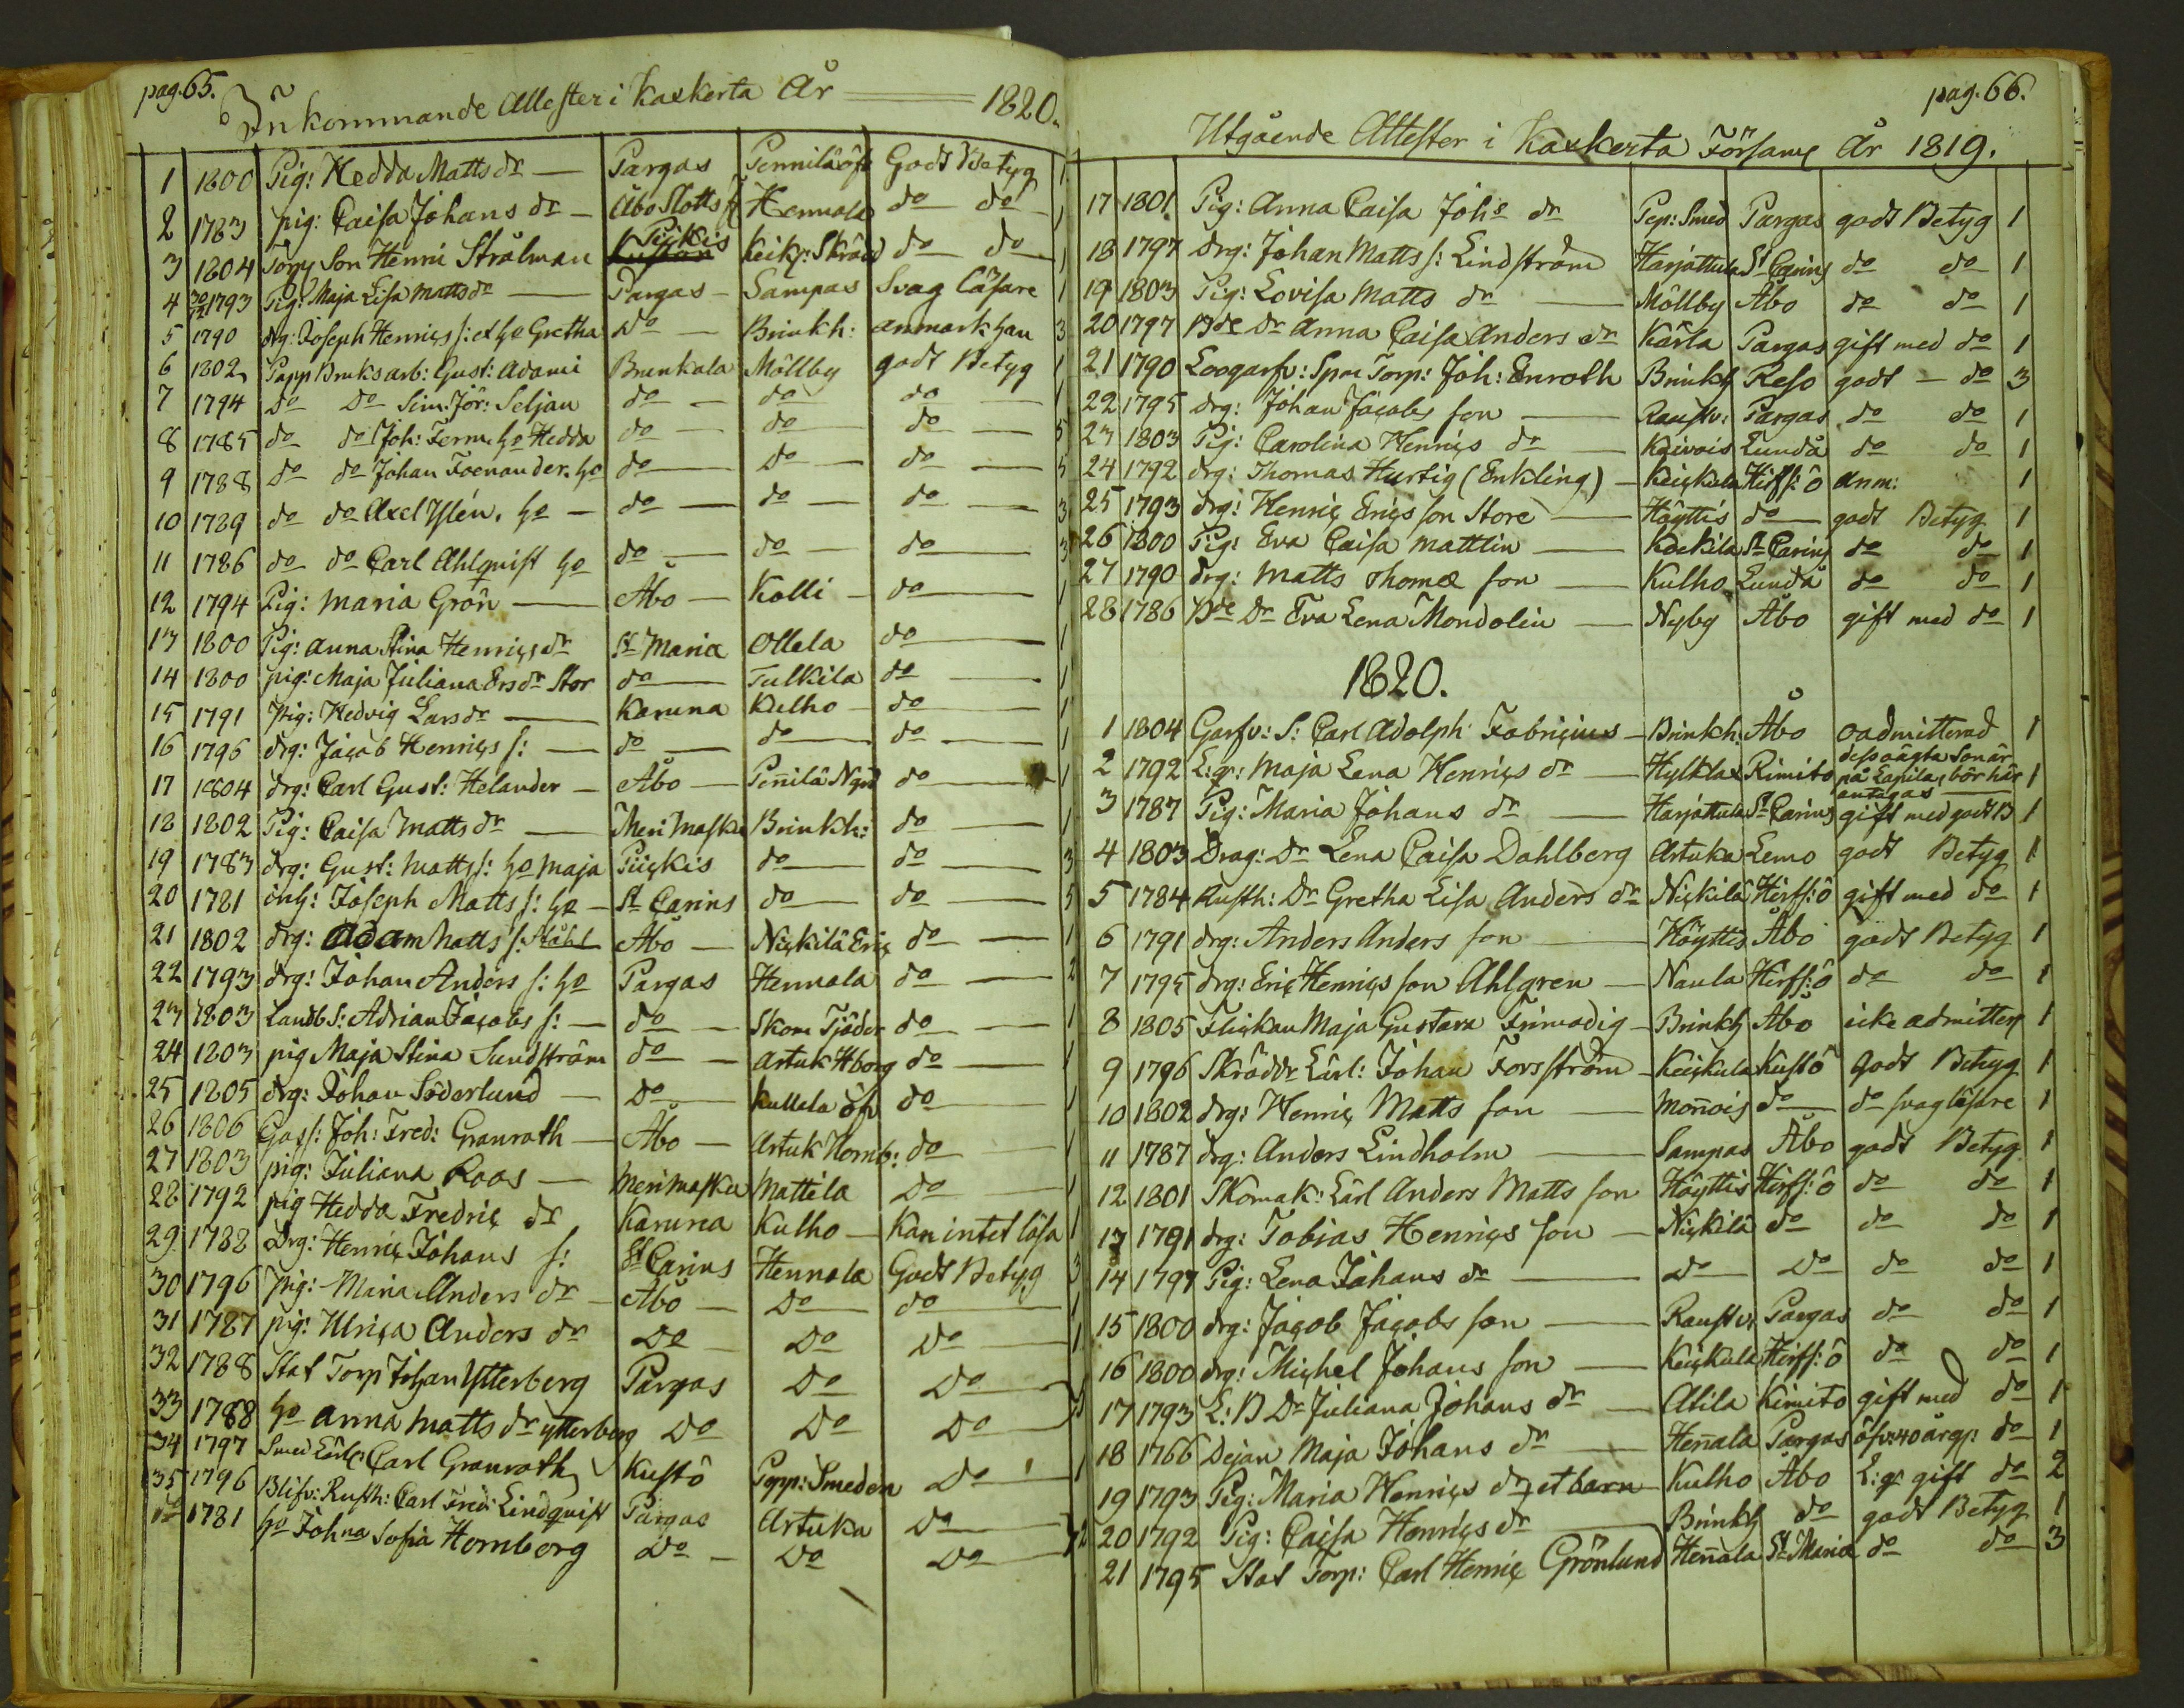 pag. 65.
Inkommande Attester i Kaxkerta År 1820.
1 1800 Pig: Hedda Matts dr Pargas Pennilä öfr Godt Betyg 1
2 1783 pig: Caisa Johans dr Åbo Slotts f Hennala do do 1
3 1804 Torp Son Henric Strålman Kustön Pikis Keik: Skräd do do 1
4 30/12 1793 Pig: Maja Lisa Matts dr Pargas Sampas Svag Läsare 1
5 1790 drg: Joseph Henrics s: et ho Gretha do Brinkh: anmärk han 3
6 1802 Papp Bruksarb: Gust: Adami Brunkala Möllby godt Betyg 1
7 1794 do do Sim: Jör: Seljan do do do 1
8 1785 do do Joh: Ferm. ho Hedda do do do 5
9 1788 do do Johan Foenander. ho do do do 5
10 1789 do do Axel Ylén. ho do do do 3
11 1786 do do Carl Ahlqvist ho do do do 3
12 1794 Pig: Maria Grön Åbo Kolli do 1
13 1800 Pig: Anna Stina Henrics dr St Maria Ollela do 1
14 1800 pig: Maja Juliana Ers dr Stor do Tulkila do 1
15 1791 Pig: Hedvig Lars dr Karuna Kulho do 1
16 1796 drg: Jacob Henrics s: do do do 1
17 1804 drg: Carl Gust: Helander Åbo Peñilä Ngd do 1
18 1802 Pig: Caisa Matts dr Merimasku Brinkh: do 1
19 1783 drg: Gust: Matts s: ho Maja Piickis do do 3
20 1781 inh: Joseph Matts s: ho St Carins do do 5
21 1802 drg: Adam Matts s: Ståhl Åbo Nickilä Eric do 1
22 1793 drg: Johan Anders s: ho Pargas Hennala do 2
23 1803 Landb S: Adrian Jacobs s: do Skom Tjäder do 1
24 1803 pig Maja Stina Sundström do Artuk Hborg do 1
25 1805 drg: Johan Söderlund do Kullela öfr do 1
26 1806 Goss: Joh: Fred: Granroth Åbo Artuk Hornb: do 1
27 1803 pig: Juliana Roos Merimasku Mattila do 1
28 1792 pig Hedda Fredric dr Karuna Kulho Kan intet läsa 1
29 1788 Drg: Henric Johans s: St Carins Hennala Godt Betyg 3
30 1796 Pig: Maria Anders dr Åbo do do 1
31 1787 pig: Ulrica Anders dr do do do 1
32 1788 Stat Torp Johan Ytterberg Pargas do do
33 1788 ho Anna Matts dr ytterberg do do do
34 1797 Smed Lärl: Carl Granroth Kustö Papp: Smeden do 1
35 1796 Blifv: Rusth: Carl Fred: Lindquist Pargas Artuka do
1781 ho Johna Sofia Hornborg do do do 2
pag. 66.
Utgående Attester i Kaxkerta Församl År 1819.
17 1801 Pig: Anna Caisa Johs dr Pep: Smed Pargas godt Betyg 1
18 1797 Drg: Johan Matts s: Lindström Harjattula St Carins do do 1
19 1803 Pig: Lovisa Matts dr Möllby Åbo do do 1
20 1797 Bde dr Anna Caisa Anders dr Kärla Pargas gift med do 1
21 1790 Logarfv: Spoe Torp: Joh: Enroth Brinkh Reso godt do 3
22 1795 drg: Johan Jacobs son Raustv: Pargas do do 1
23 1803 Pig: Carolina Henrics dr Kaivois Lundå do do 1
24 1792 drg: Thomas Hurtig (Enkling) Keickula Hirfs:ö anm: 1
25 1793 drg: Henric Erics son Store Höyttis do godt Betyg 1
26 1800 Pig: Eva Caisa Mattlin Kockila St Carins do do 1
27 1790 drg: Matts Thomæ son Kulho Lundå do do 1
28 1786 Bde Dr Eva Lena Mondolin Nyby Åbo gift med do 1
1820.
1 1804 Garfv: S: Carl Adolph Fabricius Brinkh: Åbo oadmitterad 1
2 1792 L:qv: Maja Lena Henrics dr Hylklax Rimito dess oägta Son är på Lapila, bör här antagas 1
3 1787 Pig: Maria Johans dr Harjattula St Carins gift med godt B 1
4 1803 Drag: Dr Lena Caisa Dahlberg Artuka Lemo godt Betyg 1
5 1784 Rusth: Dr Gretha Lisa Anders dr Nickilä Hirfs:ö gift med do 1
6 1791 drg: Anders Anders son Höyttis Åbo godt Betyg 1
7 1795 drg: Eric Henrics son Ahlgren Naula Hirfs:ö do do 1
8 1805 Flickan Maja Gustava Frimodig Brinkh Åbo icke admitter 1
9 1796 Skräddr Lärl: Johan Forsström Keickula Kustö Godt Betyg 1
10 1802 drg: Henric Matts son Moñois do do svag läsare 1
11 1787 drg: Anders Lindholm Sampas Åbo godt Betyg 1
12 1801 Skomak: Lärl Anders Matts son Höyttis Hirfs:ö do do 1
13 1791 drg: Tobias Henrics son Nickilä do do do 1
14 1797 Pig: Lena Johans dr do do do do 1
15 1800 drg: Jacob Jacobs son Raustv: Pargas do do 1
16 1800 drg: Michel Johans son Keickula Hirfs:ö do do 1
17 1793 L: B Dr Juliana Johans dr Atila Kimito gift med do 1
18 1766 Dejan Maja Johans dr Heñala Pargas öfv: 40 årg: do 1
19 1793 Pig: Maria Henrics dr et barn Kulho Åbo L:qv gift do 2
20 1792 Pig: Caisa Henrics dr Brinkh do godt Betyg 1
21 1795 Stat Torp: Carl Henric Grönlund Heñala St Maria do do 3